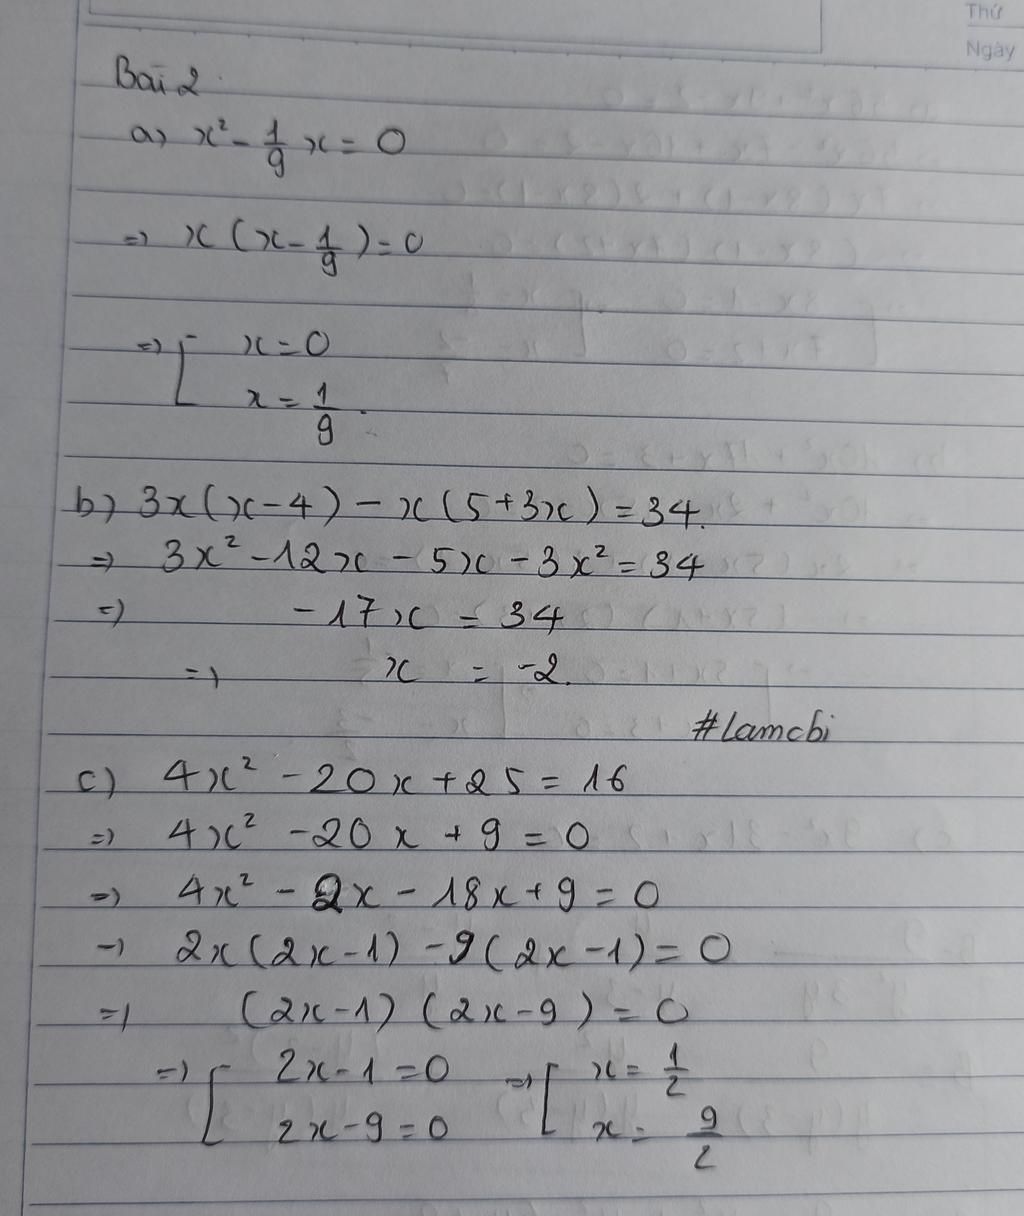 Thứ
Ngày
Bài 2.
a) x² - 1/9 x = 0
=> x(x - 1/9) = 0
=> [ x = 0
x = 1/9.
b) 3x(x-4) - x(5+3x) = 34.
=> 3x² - 12x - 5x - 3x² = 34
=> -17x = 34
=> x = -2.
#Lamcbi
c) 4x² - 20x + 25 = 16
=> 4x² - 20x + 9 = 0
=> 4x² - 2x - 18x + 9 = 0
=> 2x(2x-1) - 9(2x-1) = 0
=> (2x-1)(2x-9) = 0
=> [ 2x-1 = 0 => [ x = 1/2
2x-9 = 0 x = 9/2